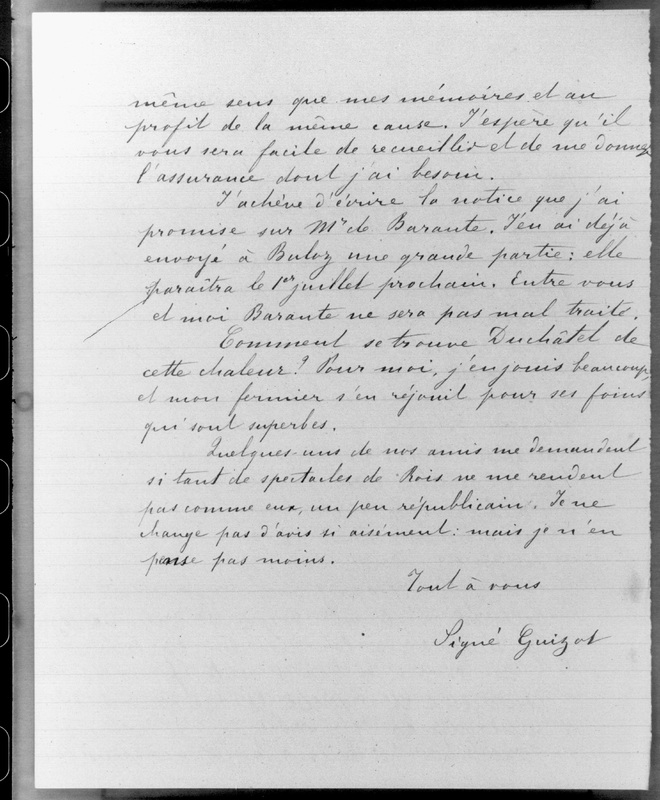 même sens que mes mémoires et au
profit de la même cause. J'espère qu'il
vous sera facile de recueillir et de me donner
l'assurance dont j'ai besoin.
J'achève d'écrire la notice que j'ai
promise sur Mr de Barante. J'en ai déjà
envoyé à Buloz une grande partie : elle
paraîtra le 1er juillet prochain. Entre vous
et moi Barante ne sera pas mal traité.
Comment se trouve Duchâtel de
cette chaleur ? Pour moi, j'en jouis beaucoup,
et mon fermier s'en réjouit pour ses foins
qui sont superbes.
Quelques uns de nos amis me demandent
si tant de spectacles de Rois ne me rendent
pas comme eux, un peu républicain. Je ne
change pas d'avis si aisément : mais je n'en
pense pas moins.
Tout à vous
Signé Guizot